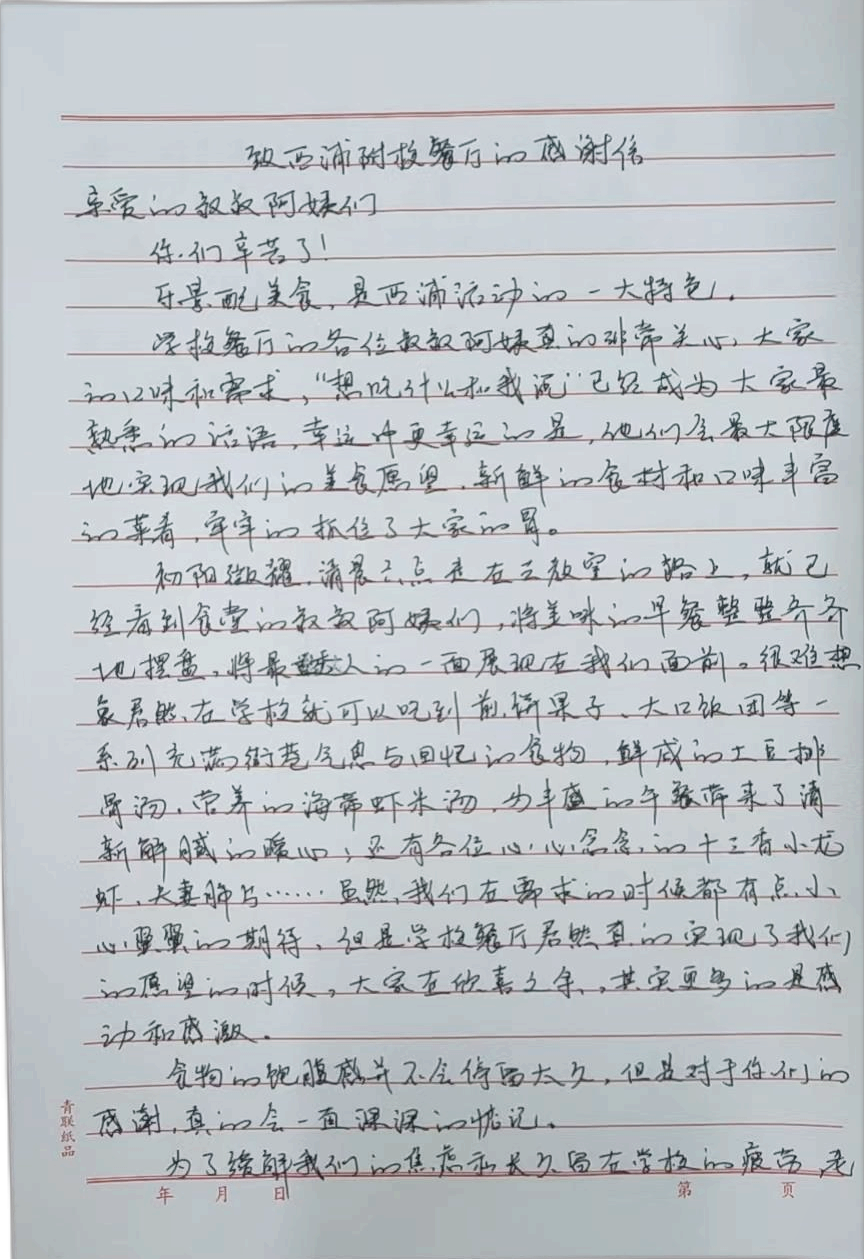 致西浦附校餐厅的感谢信
亲爱的叔叔阿姨们
你们辛苦了!
乐景配美食,是西浦活动的一大特色。
学校餐厅的各位叔叔阿姨真的非常关心,大家
的口味和需求,“想吃什么和我说”已经成为大家最
熟悉的话语,幸运中更幸运的是,他们会最大限度
地实现我们的美食愿望,新鲜的食材和口味丰富
的菜肴,牢牢的抓住了大家的胃。
初阳微耀,清晨六点走在去教室的路上,就已
经看到食堂的叔叔阿姨们,将美味的早餐整整齐齐
地摆盘,将最诱人的一面展现在我们面前。很难想
象居然在学校就可以吃到煎饼果子、大口饭团等一
系列充满街巷气息与回忆的食物,鲜咸的土豆排
骨汤,营养的海带虾米汤,为丰盛的午餐带来了清
新解腻的暖心;还有各位心心念念的十三香小龙
虾、夫妻肺片……虽然,我们在要求的时候都有点小
心翼翼的期待,但是学校餐厅居然真的实现了我们
的愿望的时候,大家在欣喜之余,其实更多的是感
动和感激。
食物的饱腹感并不会停留太久,但是对于你们的
感谢,真的会一直深深的惦记。
为了缓解我们的焦虑和长久留在学校的疲劳,
青联纸品
年 月 日
第 页